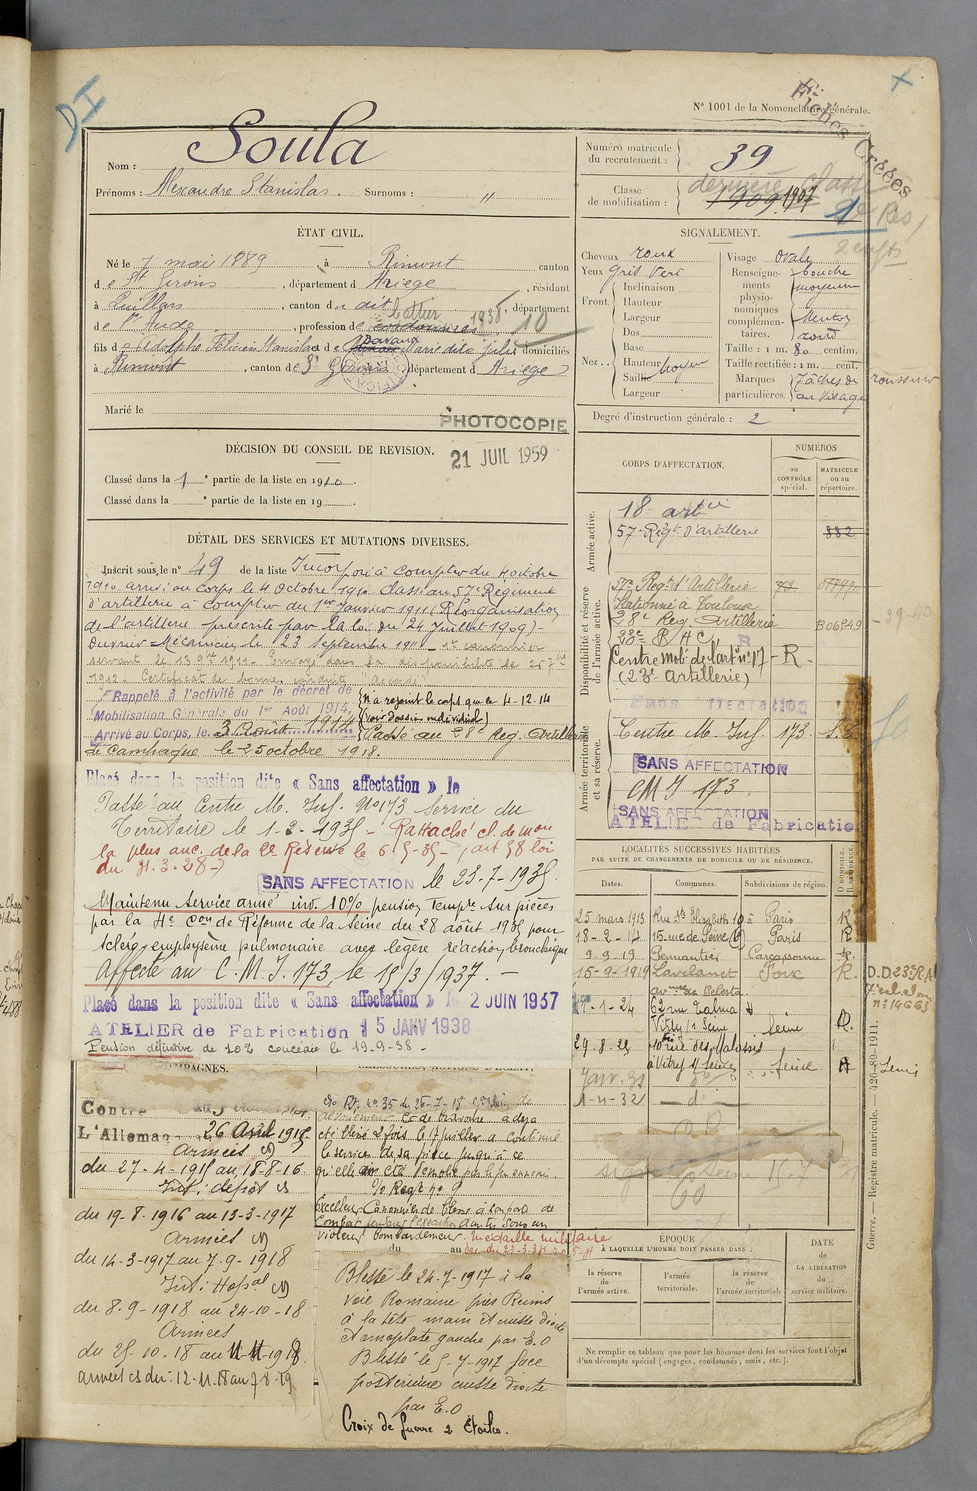 DI
N° 1001 de la Nomenclature générale.
Fiches Créées
Nom : Soula
Prénoms : Alexandre Stanislas. Surnoms : "
Numéro matricule
du recrutement : 39
Classe
de mobilisation : 1909 1907
dernière classe
2e Rés
2 enfts
1
ÉTAT CIVIL.
Né le 7 mai 1889, à Rimont canton
de St Girons, département d Ariège, résidant
à Quillan, canton du dit, département
de l'Aude, profession de cordonnier
1938 10
fils d'Adolphe Félicien Stanislas et de Marie dite Julie domiciliés
à Rimont, canton de St Girons, département d Ariège
Marié le
PHOTOCOPIE
21 JUIL 1959
SIGNALEMENT.
Cheveux roux
Yeux gris vert
Front. Inclinaison
Hauteur
Largeur
Nez. Dos
Base
Hauteur moyen
Saillie
Largeur
Visage ovale
Renseignements physionomiques complémentaires. bouche
moyenne
Menton
rond
Taille : 1 m. 80 centim.
Taille rectifiée : 1 m. cent.
Marques particulières. Tâches de rousseur
au visage
Degré d'instruction générale : 2
DÉCISION DU CONSEIL DE REVISION.
Classé dans la 1e partie de la liste en 1910.
Classé dans la e partie de la liste en 19
DÉTAIL DES SERVICES ET MUTATIONS DIVERSES.
Inscrit sous le n° 49 de la liste Incorporé à compter du 4 octobre
1910 arrivé au corps le 4 octobre 1910 classé au 57e Régiment
d'artillerie à compter du 1er Janvier 1911 (Réorganisation
de l'artillerie prescrite par la loi du 24 Juillet 1909)
Ouvrier Mécanicien le 23 Septembre 1911
1912. Certificat de bonne conduite "accordé"
Rappelé à l'activité par le décret de
Mobilisation Générale du 1er Août 1914,
Arrivé au Corps, le 3 Août 1914
n'a rejoint le corps que le 4-12-14
(voir Dossier individuel)
Passé au 28e Rég. Artillerie
de campagne le 25 octobre 1918.
Placé dans la position dite « Sans affectation » le
Passé au Centre M. Inf. N°173 Service du
Territoire le 1-2-1935 - Rattaché cl. de mon
la plus anc. de la 2e Réserve le 6-5-35 - (art 58 loi
du 31-3-28)
SANS AFFECTATION le 23-7-1935.
Maintenu service armé inv. 10% pension Tempre sur pièces
par la 4e Con de Réforme de la Seine du 28 août 1935 pour
scléro-emphysème pulmonaire avec légère réaction bronchique
Affecté au C.M.I. 173, le 15/3/1937. -
Placé dans la position dite « Sans affectation » le 2 JUIN 1937
ATELIER de Fabrication 15 JANV 1938
Pension définitive de 10% concédée le 19-9-38 -
CORPS D'AFFECTATION.
NUMÉROS
au CONTRÔLE spécial.
MATRICULE ou au répertoire.
Armée active.
18e artie
57e Régt d'artillerie 882
Disponibilité et réserve
de l'armée active.
57e Régt d'Artillerie
Stationné à Toulouse
28e Reg. Artillerie B06849
28e R A C
Centre mob. de l'art. n°17 - R -
(23e Artillerie)
39-40
Armée territoriale
et sa réserve.
Sans affectation
Centre M. Inf. 173
SANS AFFECTATION
CMI 173
SANS AFFECTATION
ATELIER de Fabrication
LOCALITÉS SUCCESSIVES HABITÉES
PAR SUITE DE CHANGEMENTS DE DOMICILE OU DE RÉSIDENCE.
Dates. Communes. Subdivisions de région. D DOMICILE. R RÉSIDENCE.
25 mars 1913 Rue Ste Elisabeth 10 à Paris R
18-2-14 15 rue de Seine (6) Paris R
9-9-19 Pennautier Carcassonne
15-9-1919 Lavelanet Foix R.
av. de Belesta
1-24 62 rue Talma
Vitry s/ Seine Seine R.
29-8-25
à Vitry s/ Seine Seine R
Janv. 31
1-4-32 - d° -
CAMPAGNES.
Contre
L'Allemagne 26 Avril 1915
Armées
du 27-4-1915 au 18-8-16
Int. dépôt
du 19-8-1916 au 13-3-1917
Armées
du 14-3-1917 au 7-9-1918
Int. Hopal
du 8-9-1918 au 24-10-18
Armées
du 25-10-18 au 11-11-1918
armées du: 12-11-18 au 7-8-19
BLESSURES, ACTIONS D'ÉCLAT,
été blessé 2 fois le 17 juillet a continué
le service de sa pièce jusqu'à ce
qu'elle ait été
O/ Regt n° 9
Excellent Canonnier
violent bombardement. Médaille militaire
du au
Blessé le 24-7-1917 à la
Voie Romaine près Reims
à la tête, main et cuisse droite
et omoplate gauche par E.O
Blessé le 5-7-1917 face
postérieure cuisse droite
par E.O
Croix de Guerre 2 Étoiles.
ÉPOQUE
À LAQUELLE L'HOMME DOIT PASSER DANS :
la réserve de l'armée active.
l'armée territoriale.
la réserve de l'armée territoriale
DATE de LA LIBÉRATION du service militaire.
Ne remplir ce tableau que pour les hommes dont les services font l'objet
d'un décompte spécial (engagés, condamnés, omis, etc.).
Guerre. — Registre matricule. — 426-89-1911.